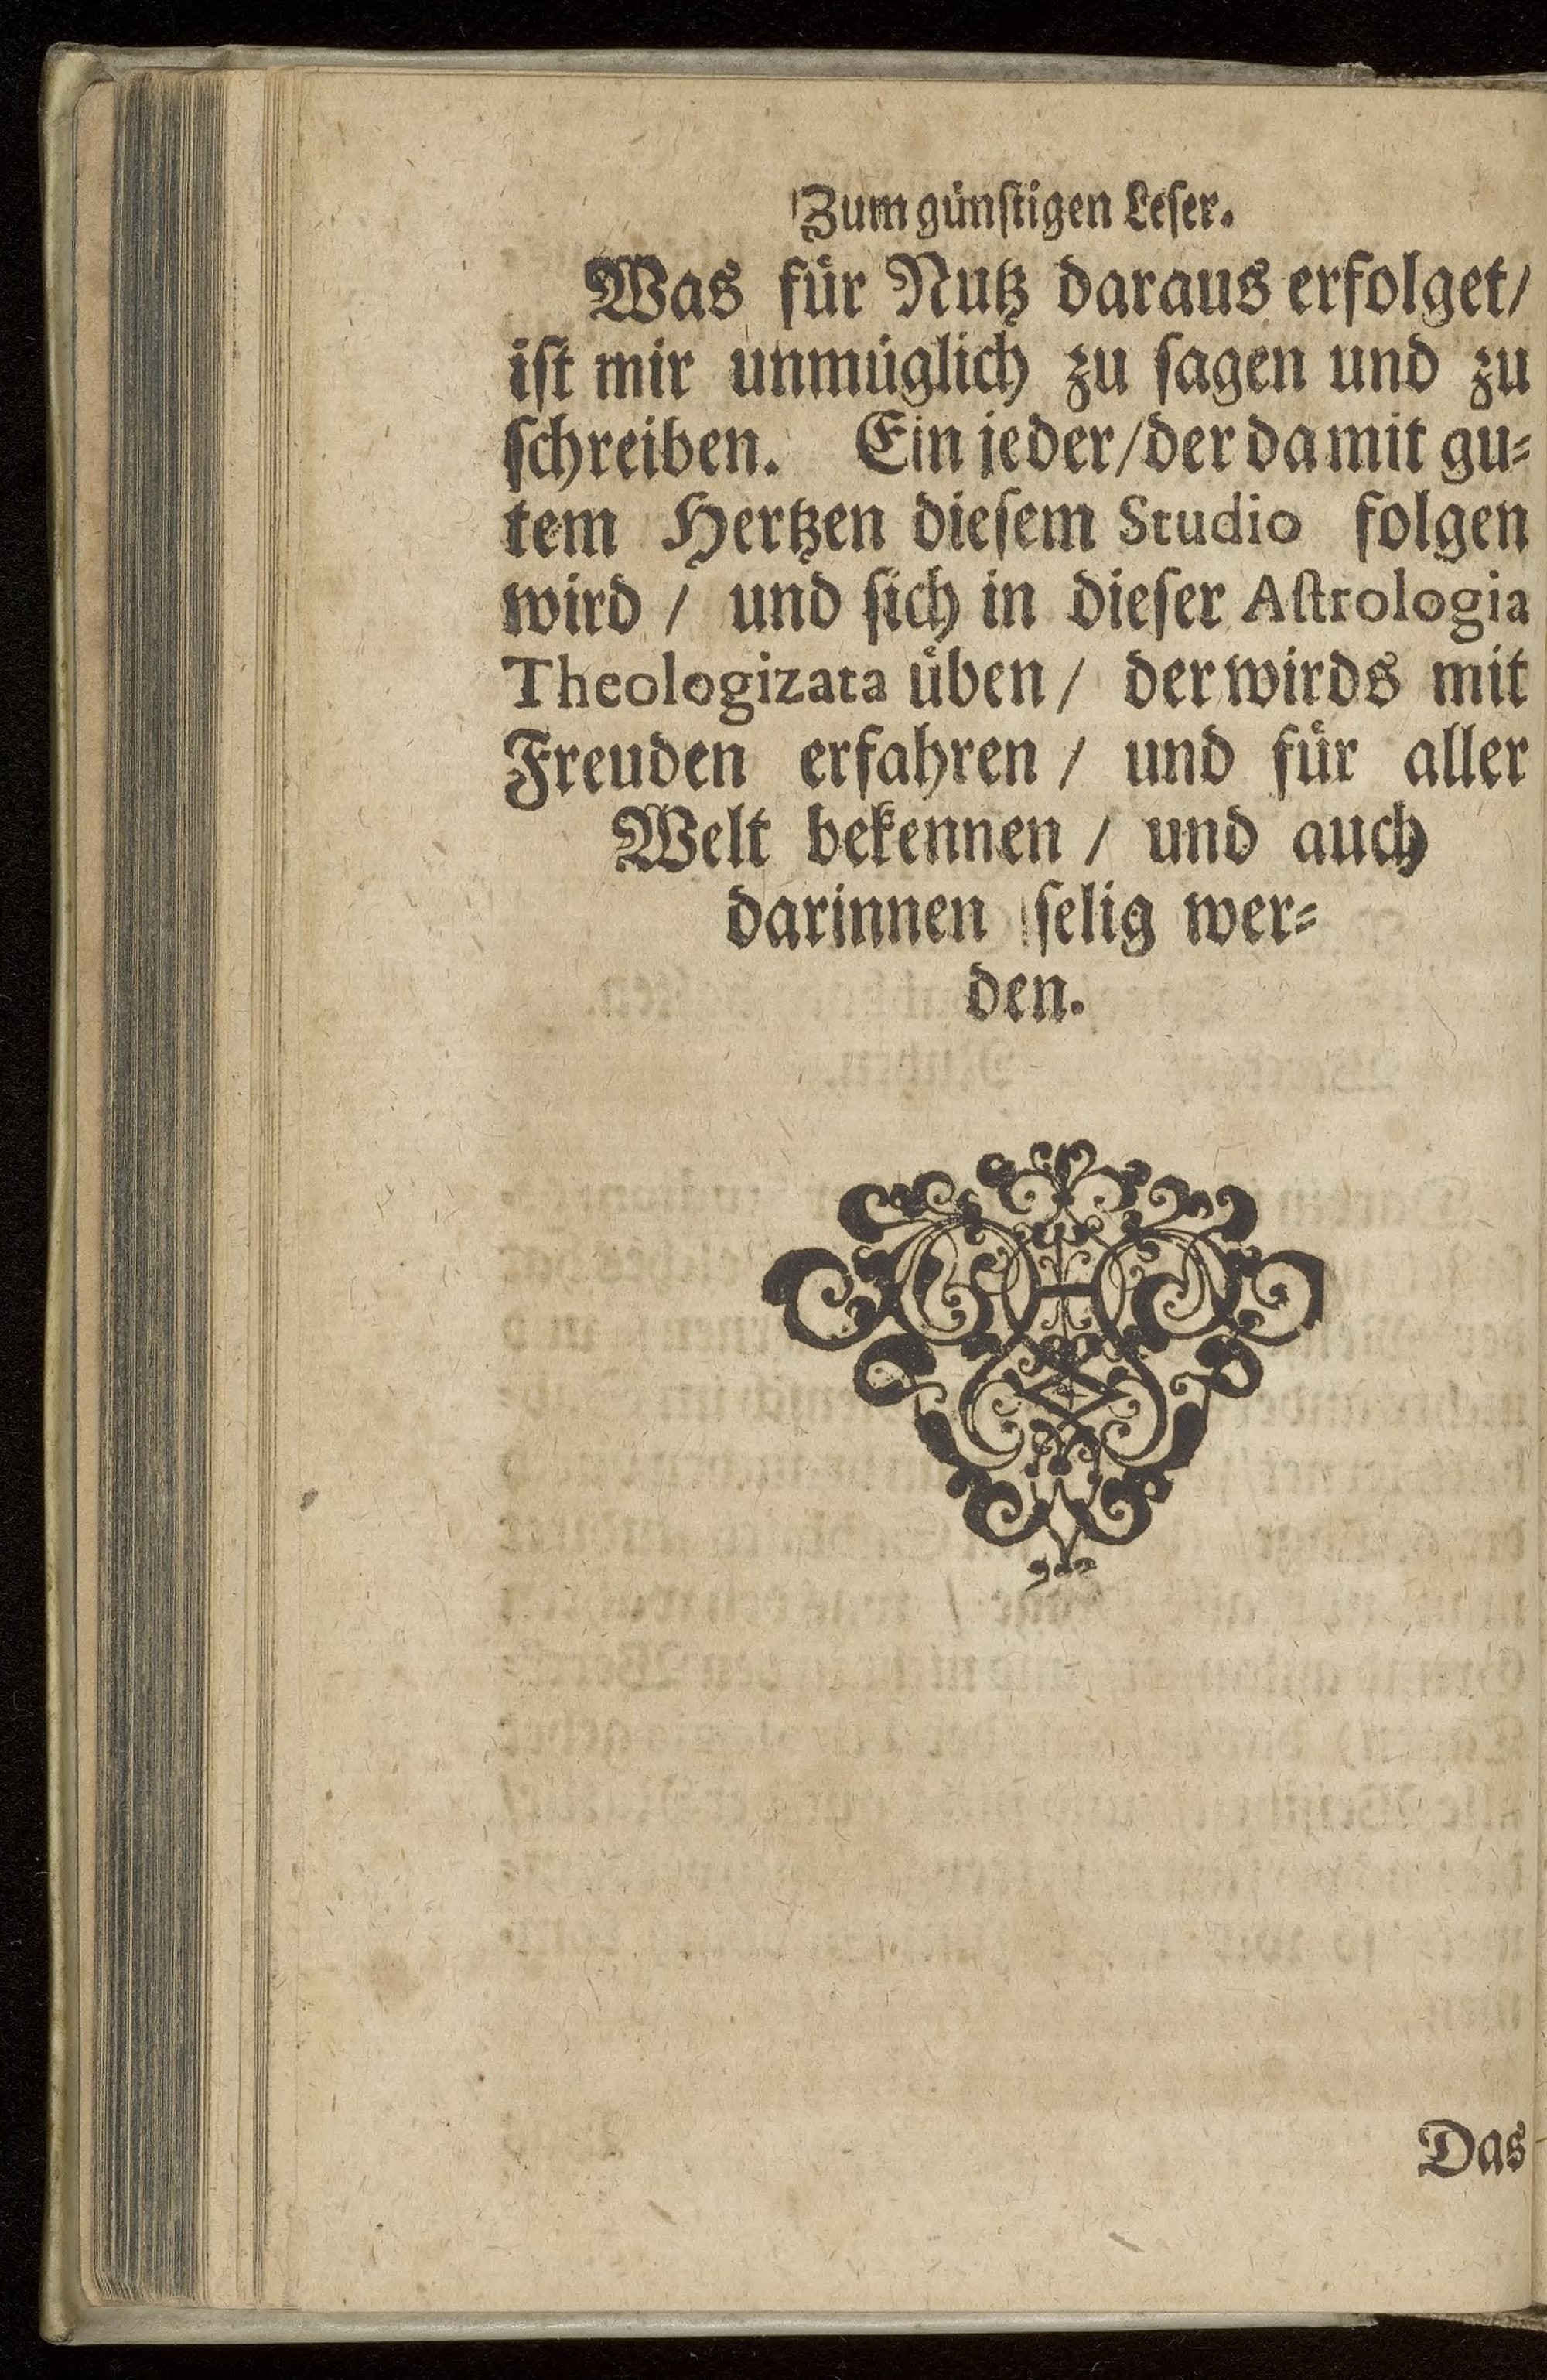 Zum günſtigen Leſer.
Was fuͤr Nutz daraus erfolget/
iſt mir unmuͤglich zu ſagen und zu
ſchreiben. Ein jeder/der da mit gu⸗
tem Hertzen dieſem Studio folgen
wird / und ſich in dieſer Aſtrologia
Theologizata uͤben / der wirds mit
Freuden erfahren / und fuͤr aller
Welt bekennen / und auch
darinnen ſelig wer⸗
den.
Das